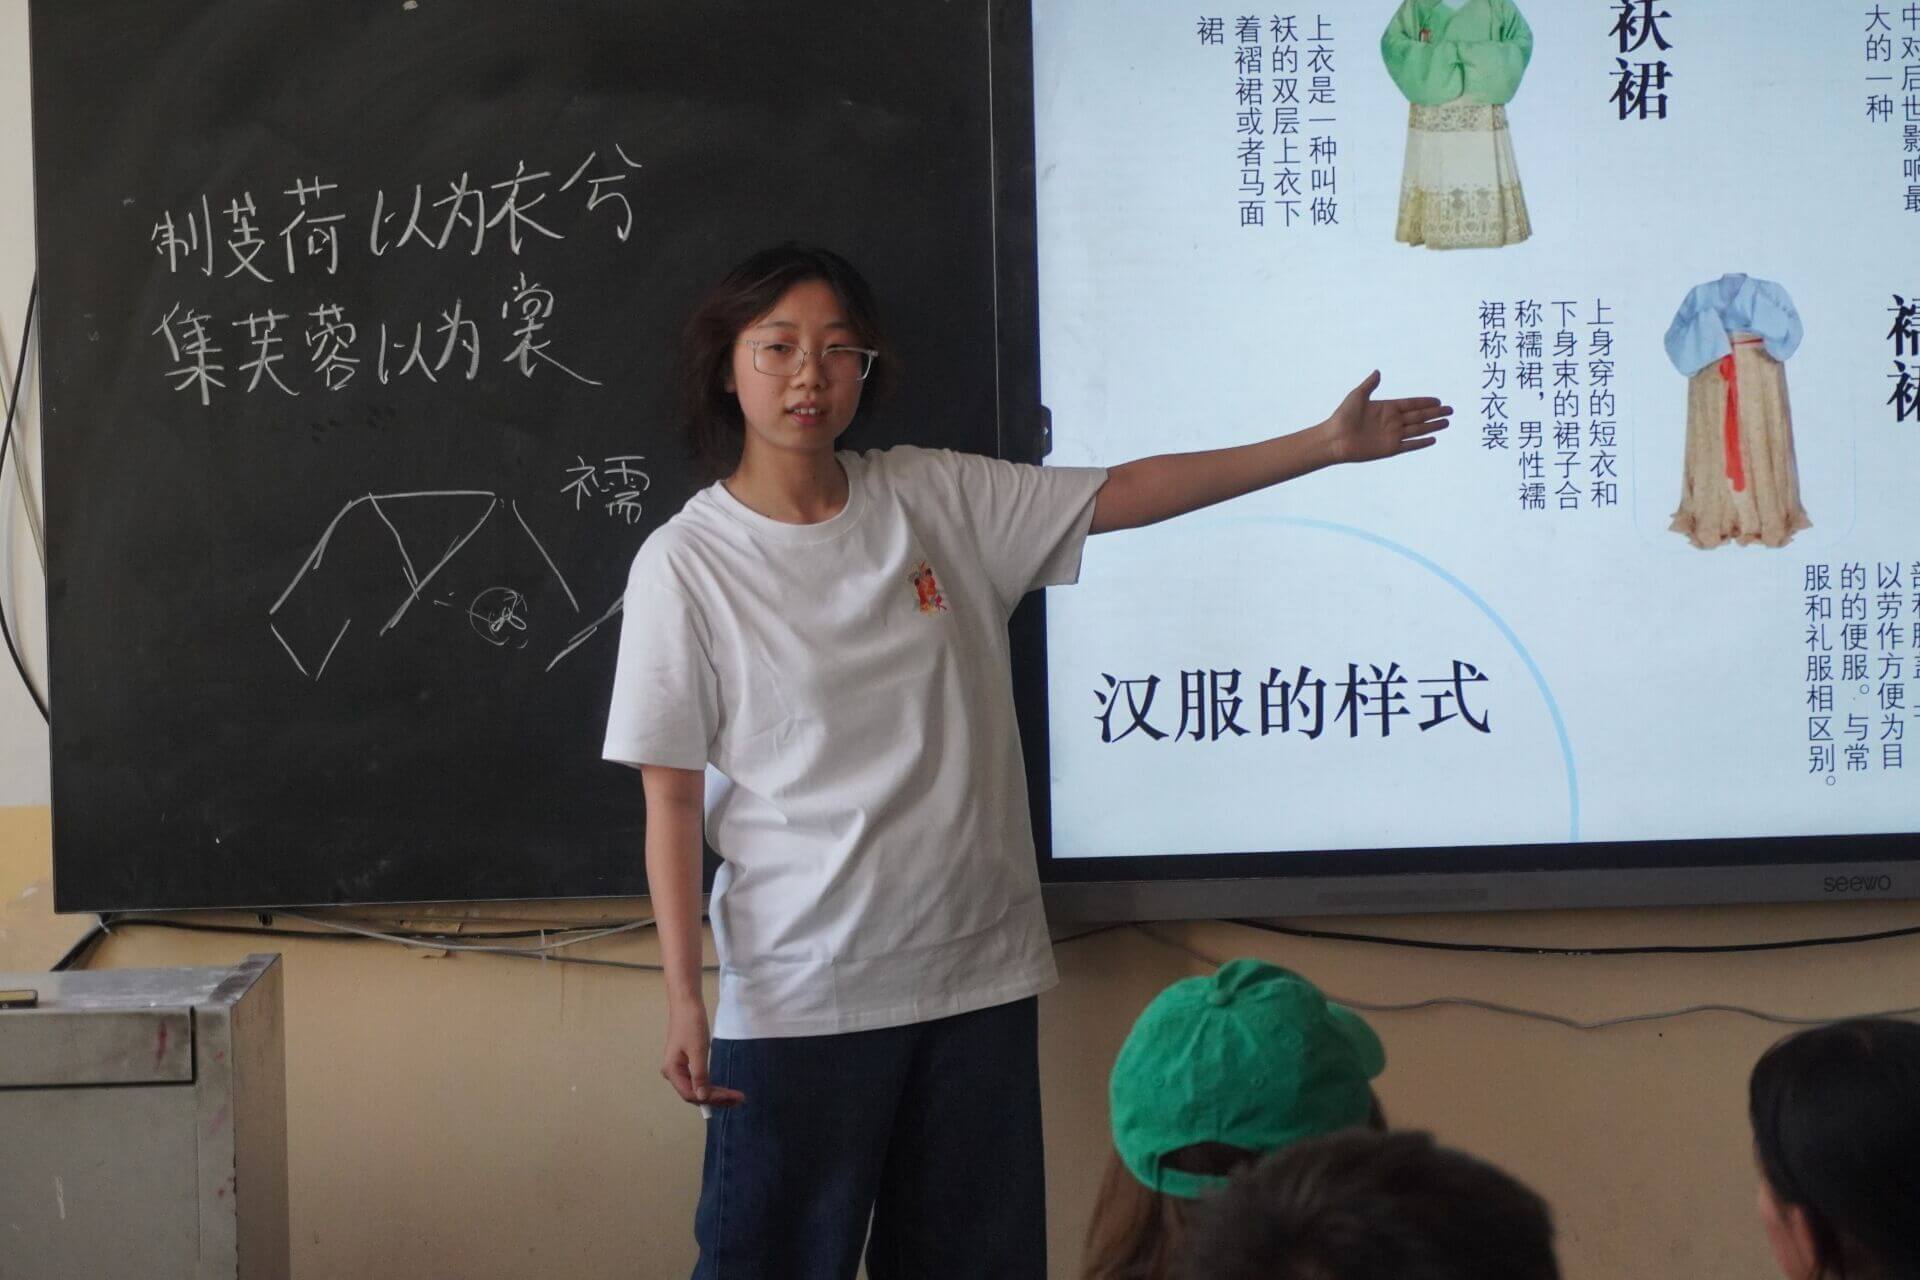 制芰荷以为衣兮
集芙蓉以为裳
襦
袄裙
上衣是一种叫做
袄的双层上衣下
着褶裙或者马面
裙
中对后世影响最
大的一种
襦裙
上身穿的短衣和
下身束的裙子合
称襦裙，男性襦
裙称为衣裳
以劳作方便为目
的的便服。与常
服和礼服相区别。
汉服的样式
seewo